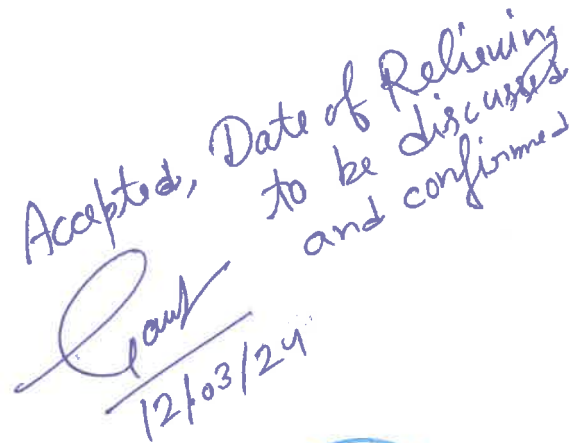 Accepted, Date of Relieving
to be discussed
and confirmed
12/03/24